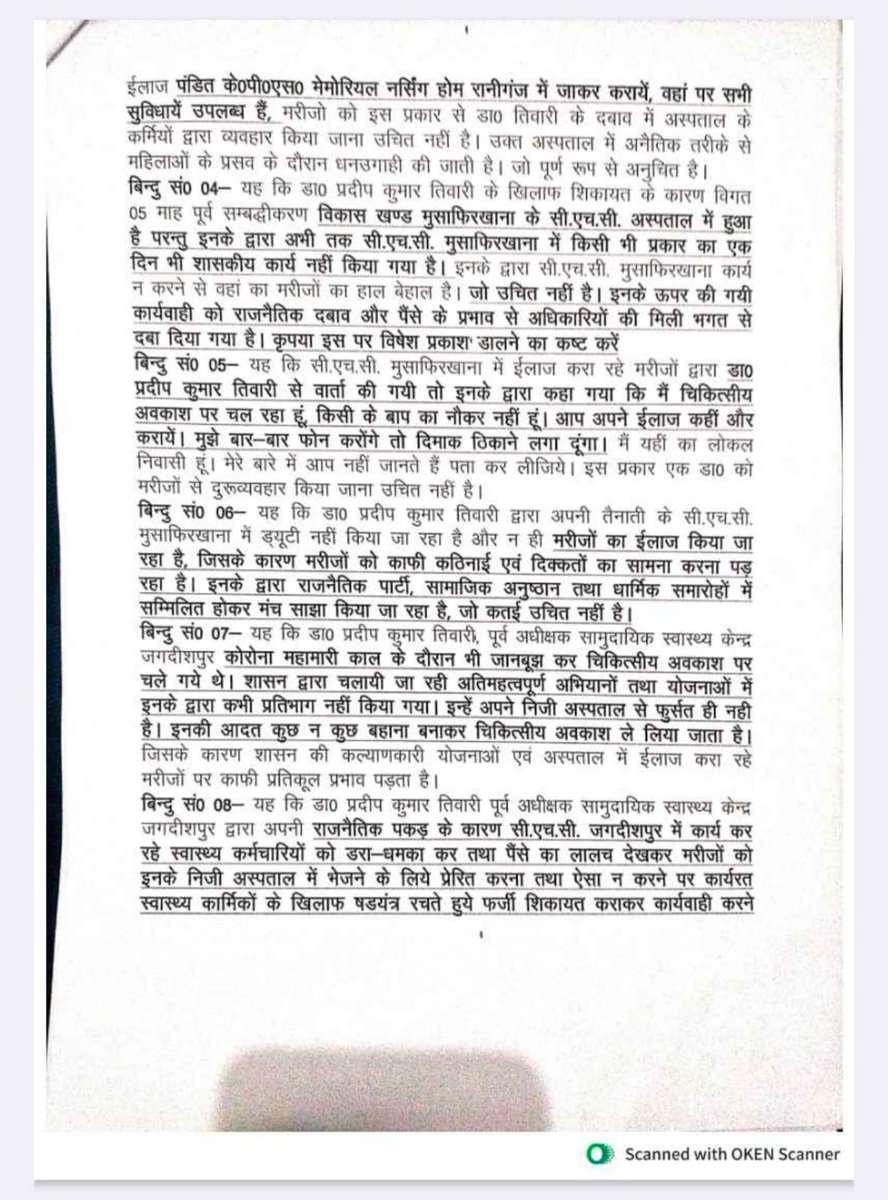 ईलाज पंडित के0पी0एस0 मेमोरियल नर्सिंग होम रानीगंज में जाकर करायें, वहां पर सभी
सुविधायें उपलब्ध हैं, मरीजो को इस प्रकार से डा0 तिवारी के दबाव में अस्पताल के
कर्मियों द्वारा व्यवहार किया जाना उचित नहीं है। उक्त अस्पताल में अनैतिक तरीके से
महिलाओं के प्रसव के दौरान धनउगाही की जाती है। जो पूर्ण रूप से अनुचित है।
बिन्दु सं0 04– यह कि डा0 प्रदीप कुमार तिवारी के खिलाफ शिकायत के कारण विगत
05 माह पूर्व सम्बद्धीकरण विकास खण्ड मुसाफिरखाना के सी.एच.सी. अस्पताल में हुआ
है परन्तु इनके द्वारा अभी तक सी.एच.सी. मुसाफिरखाना में किसी भी प्रकार का एक
दिन भी शासकीय कार्य नहीं किया गया है। इनके द्वारा सी.एच.सी. मुसाफिरखाना कार्य
न करने से वहां का मरीजों का हाल बेहाल है। जो उचित नहीं है। इनके ऊपर की गयी
कार्यवाही को राजनैतिक दबाव और पैंसे के प्रभाव से अधिकारियों की मिली भगत से
दबा दिया गया है। कृपया इस पर विषेश प्रकाश डालने का कष्ट करें
बिन्दु सं0 05– यह कि सी.एच.सी. मुसाफिरखाना में ईलाज करा रहे मरीजों द्वारा डा0
प्रदीप कुमार तिवारी से वार्ता की गयी तो इनके द्वारा कहा गया कि मैं चिकित्सीय
अवकाश पर चल रहा हूं, किसी के बाप का नौकर नहीं हूं। आप अपने ईलाज कहीं और
करायें। मुझे बार–बार फोन करोंगे तो दिमाक ठिकाने लगा दूंगा। मैं यहीं का लोकल
निवासी हूं। मेरे बारे में आप नहीं जानते हैं पता कर लीजिये। इस प्रकार एक डा0 को
मरीजों से दुरूव्यवहार किया जाना उचित नहीं है।
बिन्दु सं0 06– यह कि डा0 प्रदीप कुमार तिवारी द्वारा अपनी तैनाती के सी.एच.सी.
मुसाफिरखाना में ड्यूटी नहीं किया जा रहा है और न ही मरीजों का ईलाज किया जा
रहा है, जिसके कारण मरीजों को काफी कठिनाई एवं दिक्कतों का सामना करना पड़
रहा है। इनके द्वारा राजनैतिक पार्टी, सामाजिक अनुष्ठान तथा धार्मिक समारोहों में
सम्मिलित होकर मंच साझा किया जा रहा है, जो कतई उचित नहीं है।
बिन्दु सं0 07– यह कि डा0 प्रदीप कुमार तिवारी, पूर्व अधीक्षक सामुदायिक स्वास्थ्य केन्द्र
जगदीशपुर कोरोना महामारी काल के दौरान भी जानबूझ कर चिकित्सीय अवकाश पर
चले गये थे। शासन द्वारा चलायी जा रही अतिमहत्वपूर्ण अभियानों तथा योजनाओं में
इनके द्वारा कभी प्रतिभाग नहीं किया गया। इन्हें अपने निजी अस्पताल से फुर्सत ही नही
है। इनकी आदत कुछ न कुछ बहाना बनाकर चिकित्सीय अवकाश ले लिया जाता है।
जिसके कारण शासन की कल्याणकारी योजनाओं एवं अस्पताल में ईलाज करा रहे
मरीजों पर काफी प्रतिकूल प्रभाव पड़ता है।
बिन्दु सं0 08– यह कि डा0 प्रदीप कुमार तिवारी पूर्व अधीक्षक सामुदायिक स्वास्थ्य केन्द्र
जगदीशपुर द्वारा अपनी राजनैतिक पकड़ के कारण सी.एच.सी. जगदीशपुर में कार्य कर
रहे स्वास्थ्य कर्मचारियों को डरा–धमका कर तथा पैंसे का लालच देखकर मरीजों को
इनके निजी अस्पताल में भेजने के लिये प्रेरित करना तथा ऐसा न करने पर कार्यरत
स्वास्थ्य कार्मिकों के खिलाफ षडयंत्र रचते हुये फर्जी शिकायत कराकर कार्यवाही करने
Scanned with OKEN Scanner